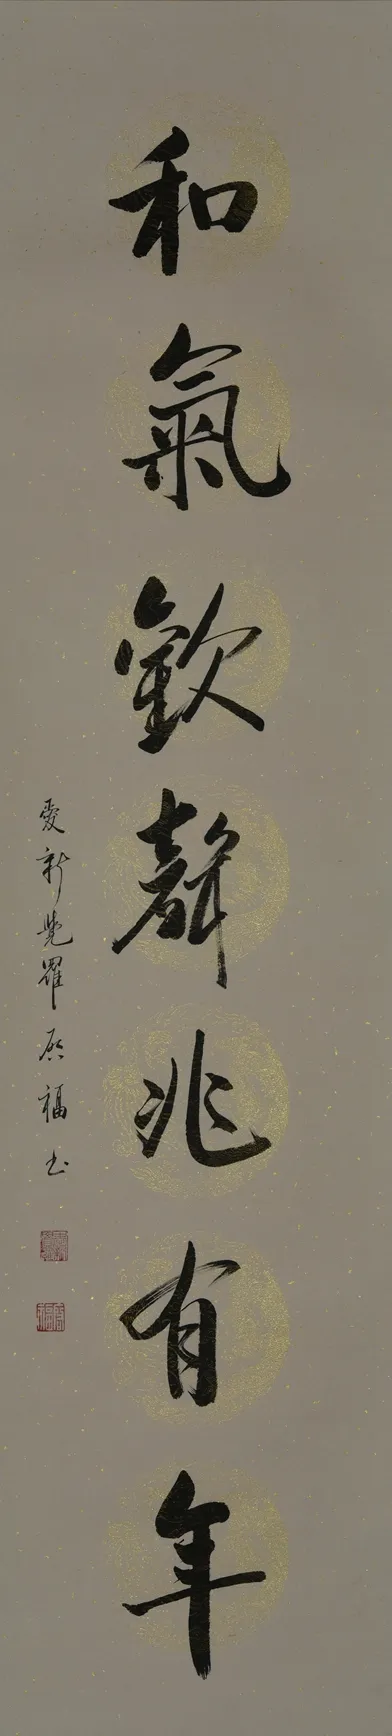 和氣歡聲兆有年
愛新覺羅啟福書